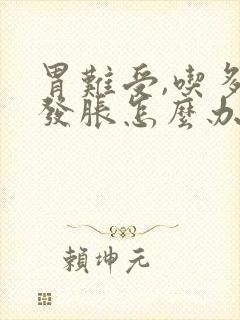 胃難受,喫多
發脹怎麼办
賴坤元